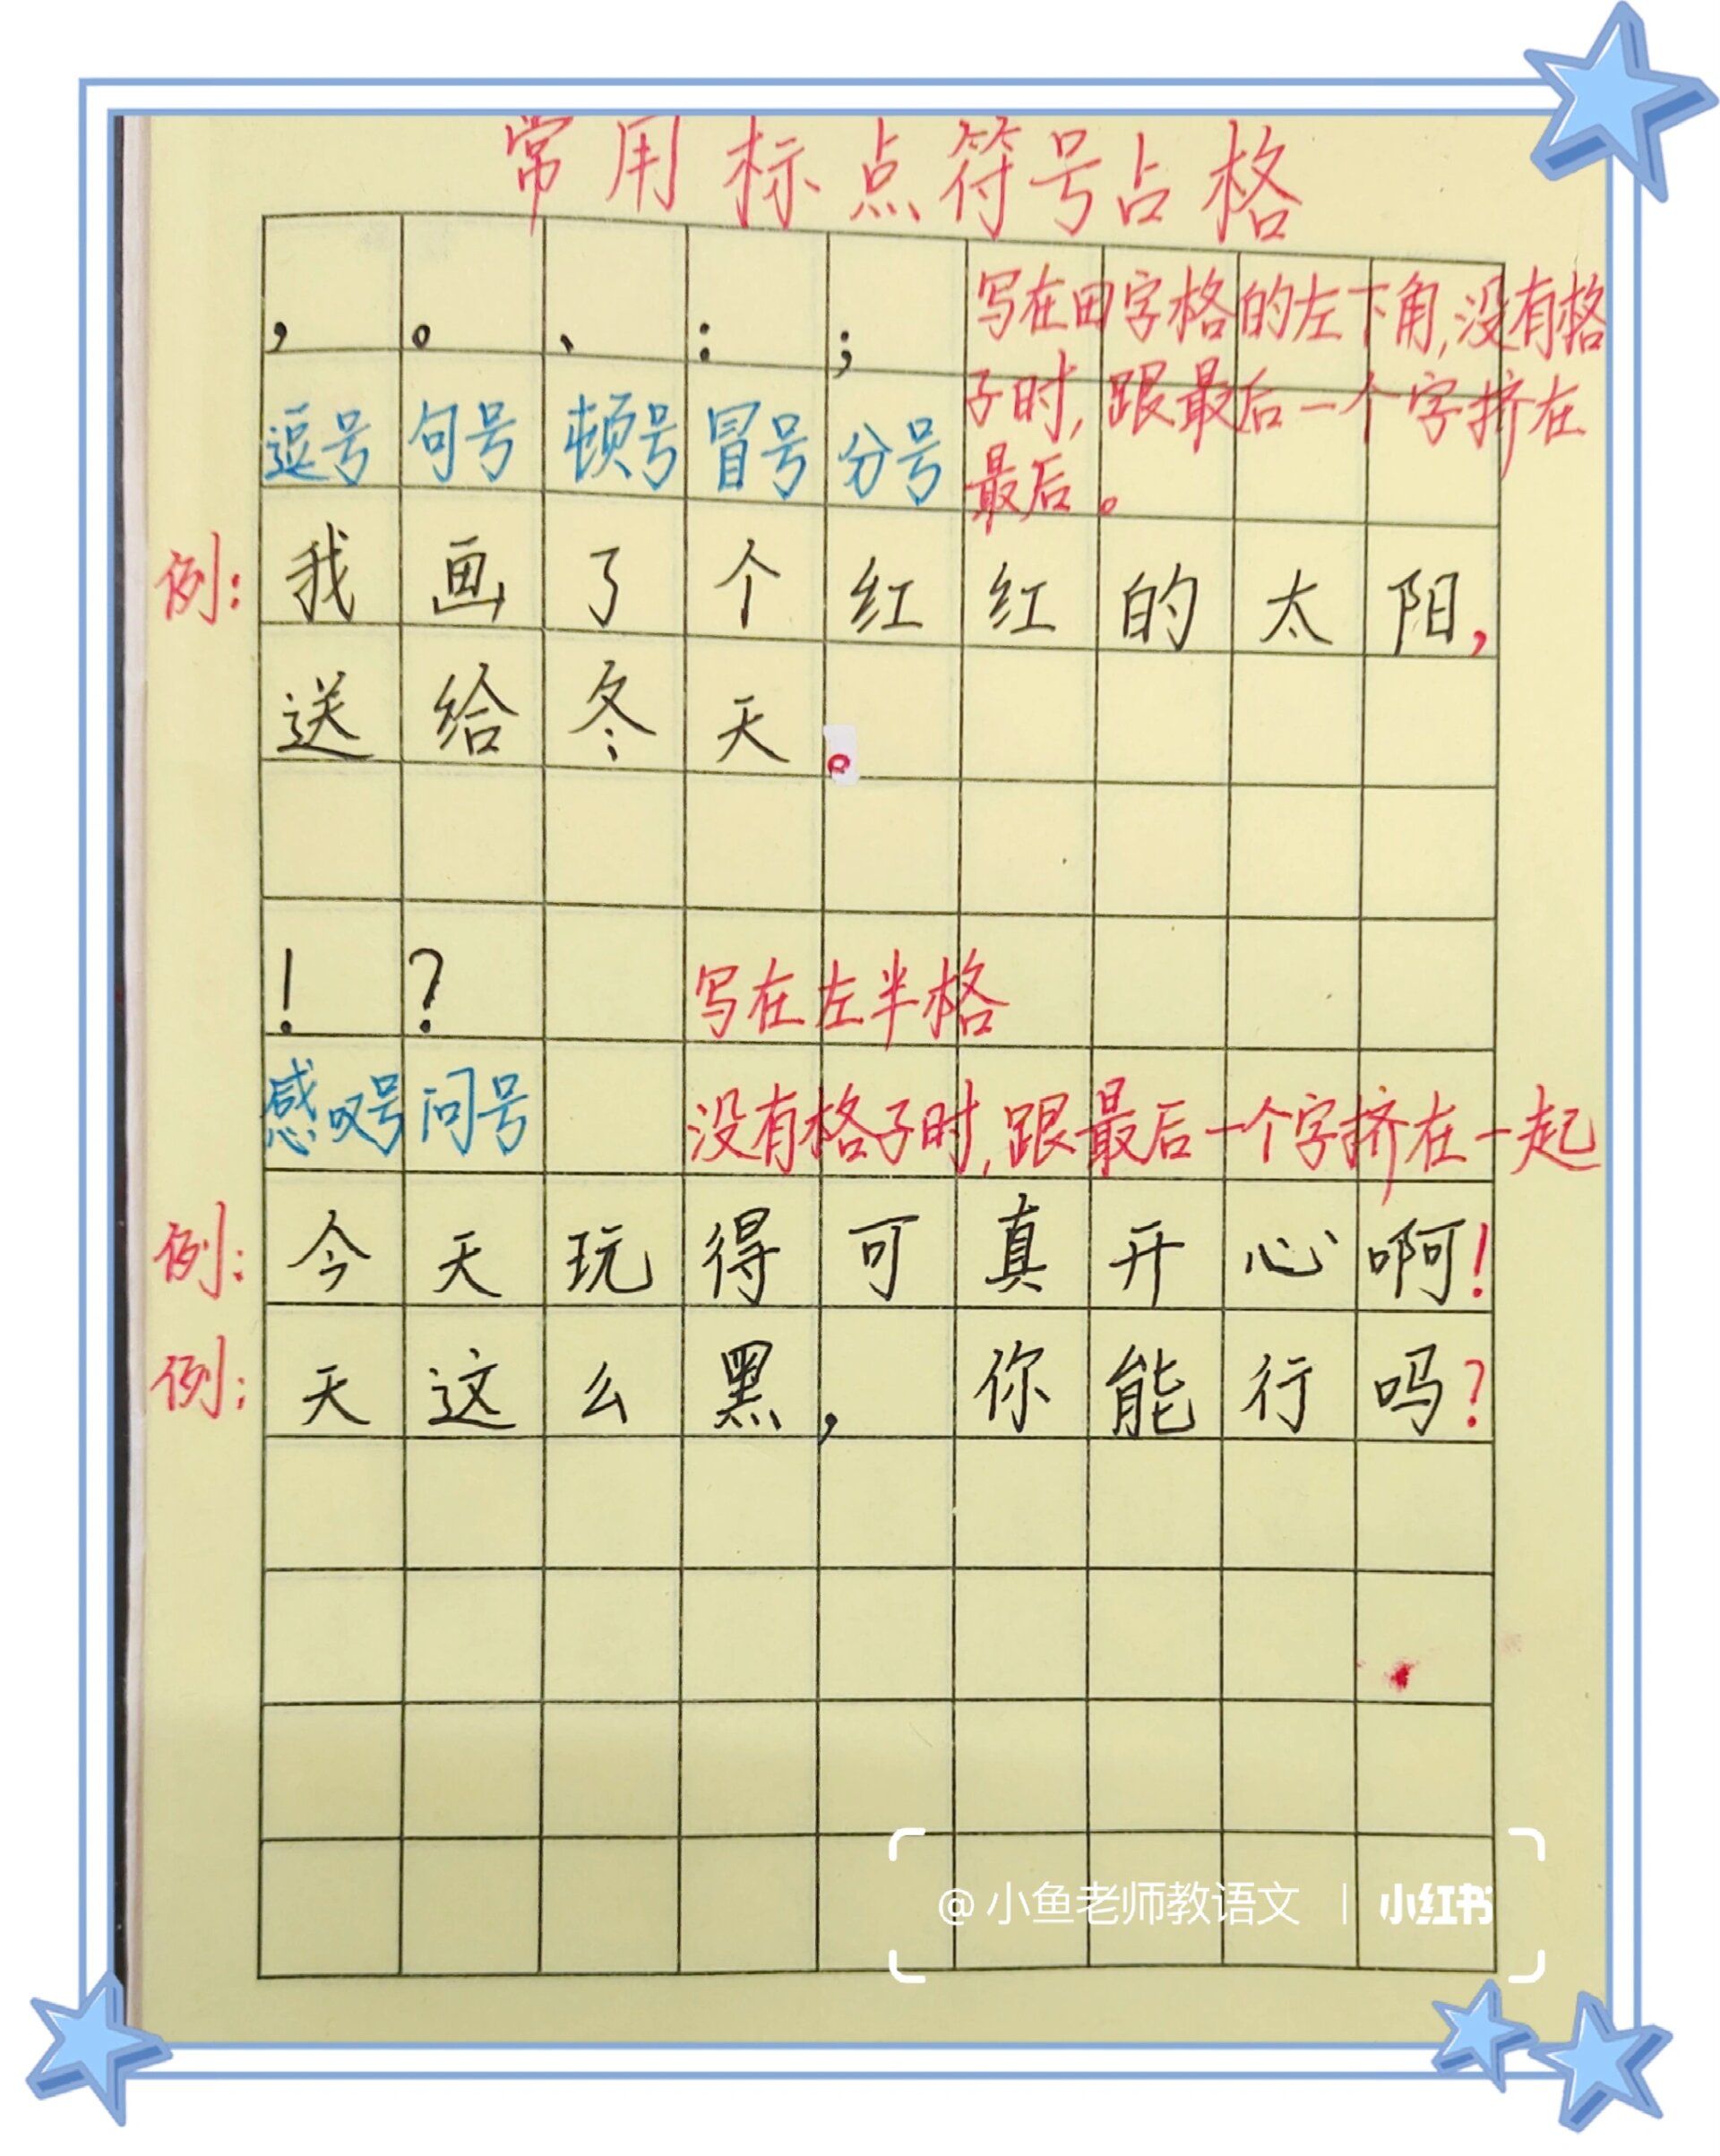 常用标点符号占格
， 。 、 ： ；
写在田字格的左下角,没有格
子时,跟最后一个字挤在
最后。
逗号 句号 顿号 冒号 分号
例: 我画了个红红的太阳,
送给冬天。
! ? 写在左半格
感叹号 问号 没有格子时,跟最后一个字挤在一起
例: 今天玩得可真开心啊!
例: 天这么黑, 你能行吗?
@小鱼老师教语文 | 小红书